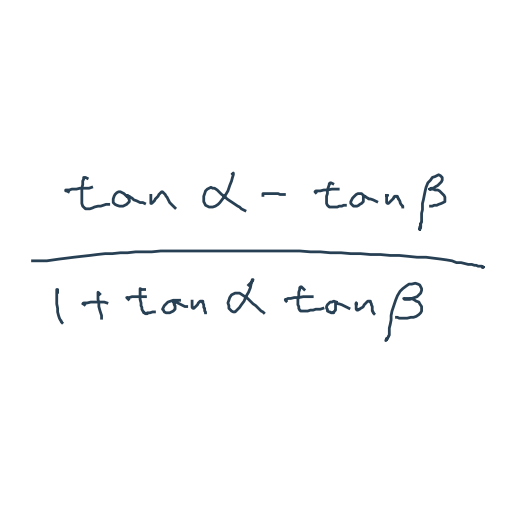 tan α − tan β
1 + tan α tan β